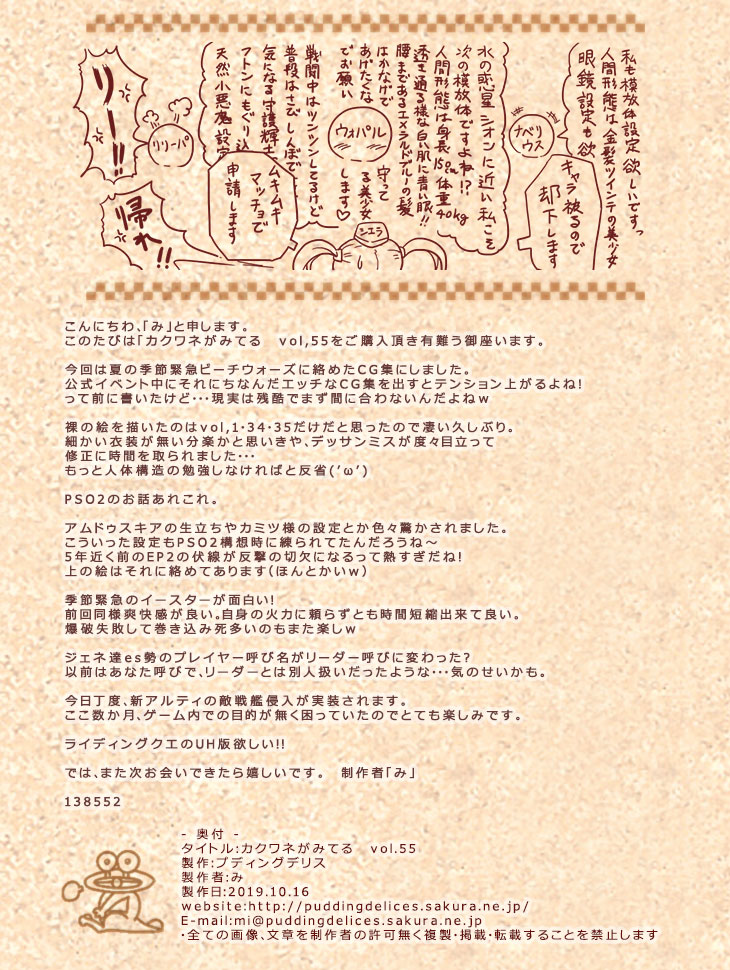 私も模放体設定欲しいですっ
人間形態は金髪ツインテの美少女
眼鏡設定も欲
ナベリ
ウス
キャラ被るので
却下します
水の惑星シオンに近い私こそ
次の模放体ですよね!?
人間形態は身長150cm体重40kg
透き通る様な白い肌に青い眼!!
腰まであるエメラルドブルーの髪
はかなげで
あげたくな
でお願い
ウォパル
守って
る美少女
します♡
戦闘中はツンツンしてるけど
普段はさびしんぼで
気になる守護輝士
フトンにもぐり込
天然小悪魔設定
ムキムキ
マッチョで
申請します
シエラ
リリーパ
リー!!
帰れ!!
こんにちわ、「み」と申します。
このたびは「カクワネがみてる　vol,55をご購入頂き有難う御座います。
今回は夏の季節緊急ビーチウォーズに絡めたCG集にしました。
公式イベント中にそれにちなんだエッチなCG集を出すとテンション上がるよね!
って前に書いたけど・・・現実は残酷でまず間に合わないんだよねw
裸の絵を描いたのはvol,1・34・35だけだと思ったので凄い久しぶり。
細かい衣装が無い分楽かと思いきや、デッサンミスが度々目立って
修正に時間を取られました・・・
もっと人体構造の勉強しなければと反省('ω')
PSO2のお話あれこれ。
アムドゥスキアの生立ちやカミツ様の設定とか色々驚かされました。
こういった設定もPSO2構想時に練られてたんだろうね～
5年近く前のEP2の伏線が反撃の切欠になるって熱すぎだね!
上の絵はそれに絡めてあります(ほんとかいw)
季節緊急のイースターが面白い!
前回同様爽快感が良い。自身の火力に頼らずとも時間短縮出来て良い。
爆破失敗して巻き込み死多いのもまた楽しw
ジェネ達es勢のプレイヤー呼び名がリーダー呼びに変わった?
以前はあなた呼びで、リーダーとは別人扱いだったような・・・気のせいかも。
今日丁度、新アルティの敵戦艦侵入が実装されます。
ここ数か月、ゲーム内での目的が無く困っていたのでとても楽しみです。
ライディングクエのUH版欲しい!!
では、また次お会いできたら嬉しいです。　制作者「み」
138552
- 奥付 -
タイトル:カクワネがみてる　vol.55
製作:プディングデリス
製作者:み
製作日:2019.10.16
website:http://puddingdelices.sakura.ne.jp/
E-mail:mi@puddingdelices.sakura.ne.jp
・全ての画像、文章を制作者の許可無く複製・掲載・転載することを禁止します